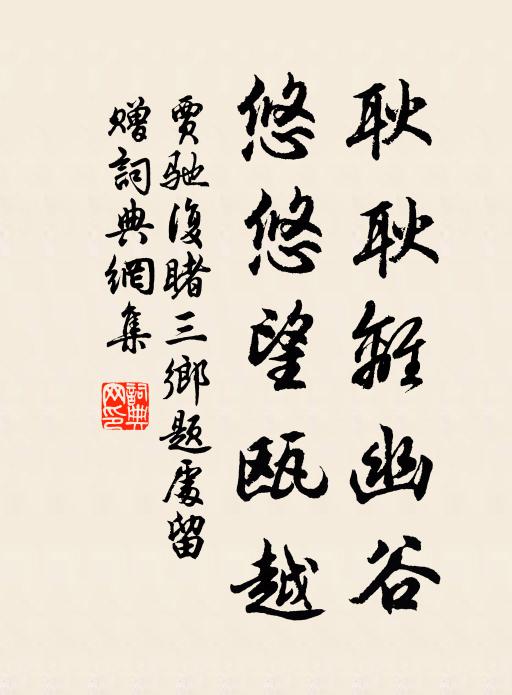 耿耿離幽谷
悠悠望甌越
賈馳復睹三鄉題處留
贈詞典網集
詞典
网印